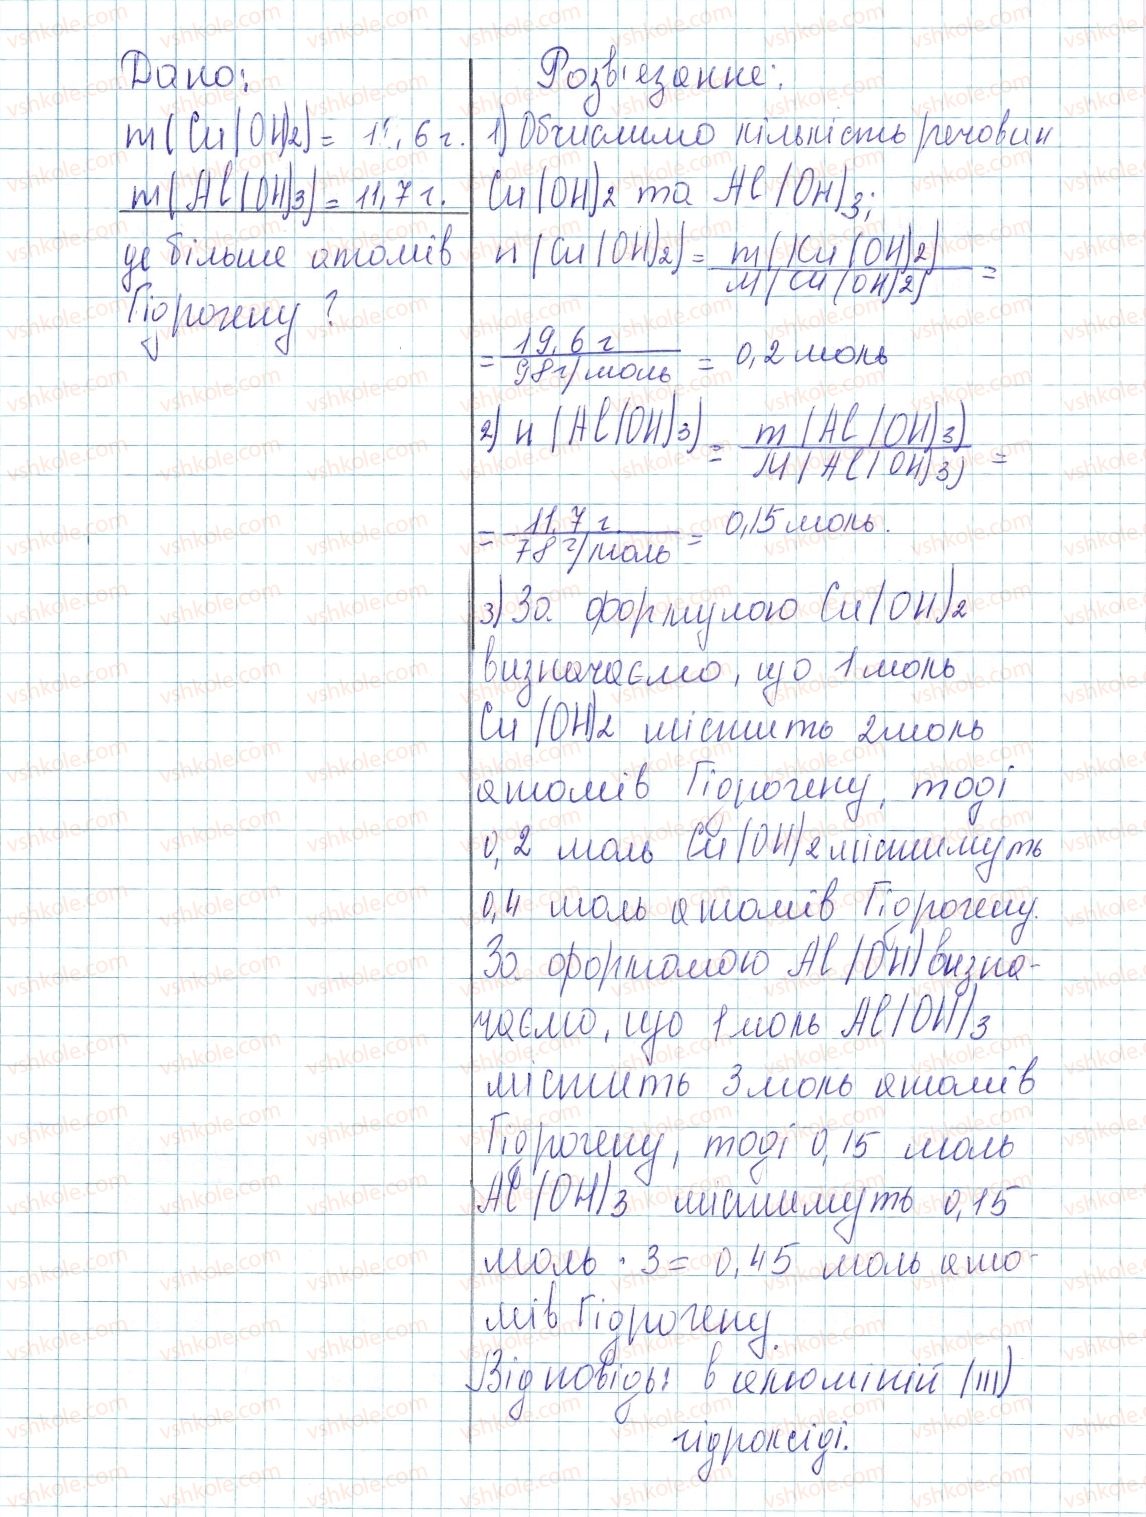 Дано:
m(Cu(OH)2) = 19,6 г.
m(Al(OH)3) = 11,7 г.
де більше атомів
Гідрогену ?
Розв'язання:
1) Обчислимо кількість речовин
Cu(OH)2 та Al(OH)3;
n(Cu(OH)2) = m(Cu(OH)2) / M(Cu(OH)2) =
= 19,6 г / 98 г/моль = 0,2 моль
2) n(Al(OH)3) = m(Al(OH)3) / M(Al(OH)3) =
= 11,7 г / 78 г/моль = 0,15 моль.
3) За формулою Cu(OH)2
визначаємо, що 1 моль
Cu(OH)2 містить 2 моль
атомів Гідрогену, тоді
0,2 моль Cu(OH)2 містимуть
0,4 моль атомів Гідрогену.
За формолою Al(OH) визна-
чаємо, що 1 моль Al(OH)3
містить 3 моль атомів
Гідрогену, тоді 0,15 моль
Al(OH)3 містимуть 0,15
моль · 3 = 0,45 моль ато-
мів Гідрогену.
Відповідь: в алюміній (III)
гідроксиді.